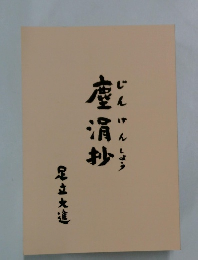 じんけんしょう
塵涓抄
足立大進